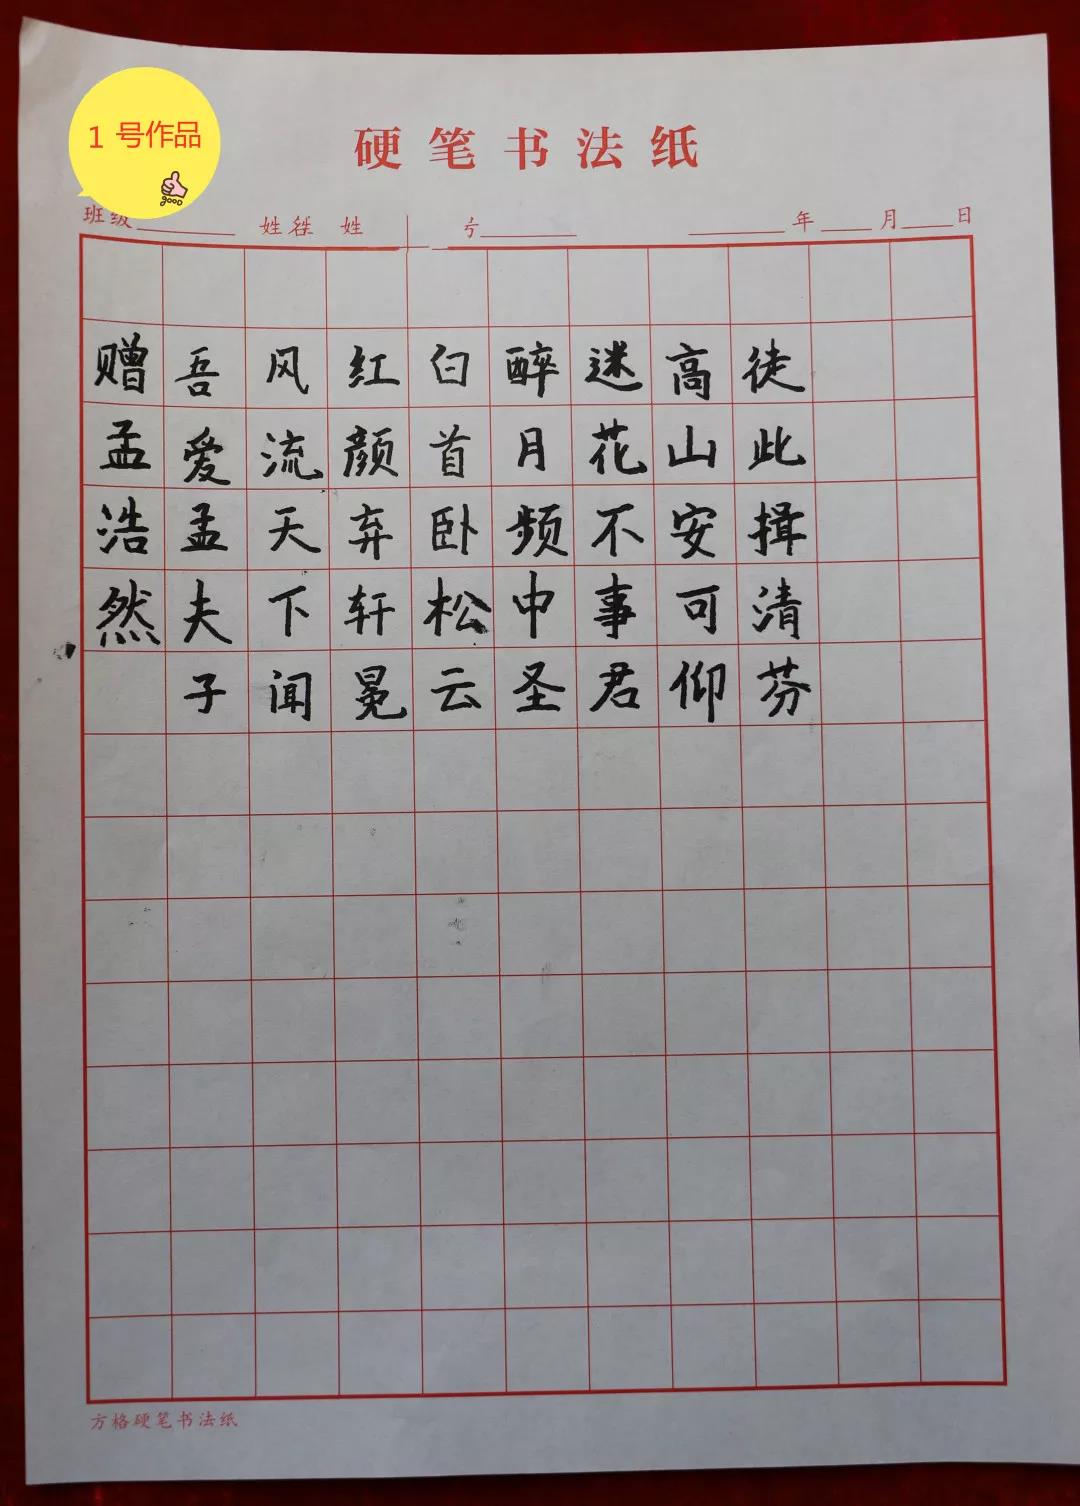 1 号作品
硬笔书法纸
班级 姓名 姓 号 年 月 日
赠孟浩然
吾爱孟夫子
风流天下闻
红颜弃轩冕
白首卧松云
醉月频中圣
迷花不事君
高山安可仰
徒此揖清芬
方格硬笔书法纸